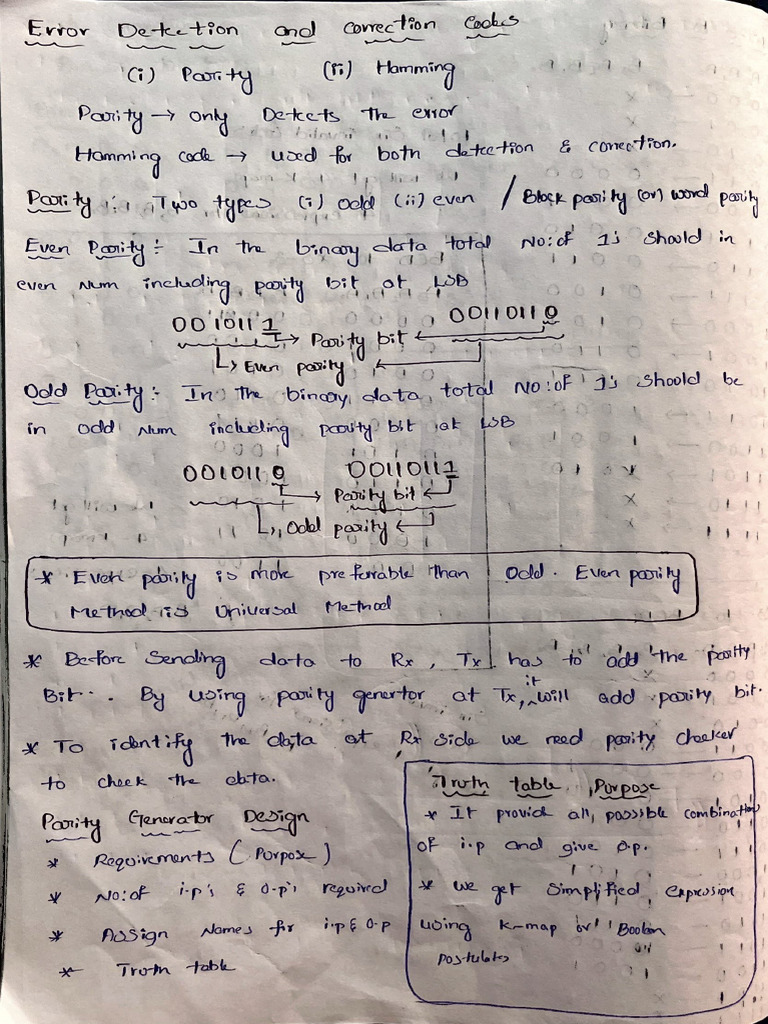 Error Detection and correction Codes
(i) Parity (ii) Hamming
Parity → only Detects the error
Hamming code → used for both detection & correction.
Parity :- Two types (i) odd (ii) even / Block parity (or) word parity
Even Parity :- In the binary data total No:of 1's should in
even Num including parity bit at LSB
0010111 → Parity bit ← 00110110
↳ Even parity ←
Odd Parity :- In the binary data, total No:of 1's should be
in odd Num including parity bit at LSB
0010110 00110111
→ Parity bit ←
↳ Odd parity ←
* Even parity is more preferrable than Odd. Even parity
Method is Universal Method
* Before Sending data to Rx, Tx has to add the parity
Bit. By using parity genertor at Tx, it will add parity bit.
* To identify the data at Rx side we need parity checker
to check the data.
Parity Generator Design
* Requirements (Purpose)
* No:of i-p's & o-p's required
* Assign Names for i-p & o-p
* Truth table
Truth table Purpose
* It provid all possible combination
of i.p and give o.p.
* we get Simplified expression
using K-map or Boolean
postulates